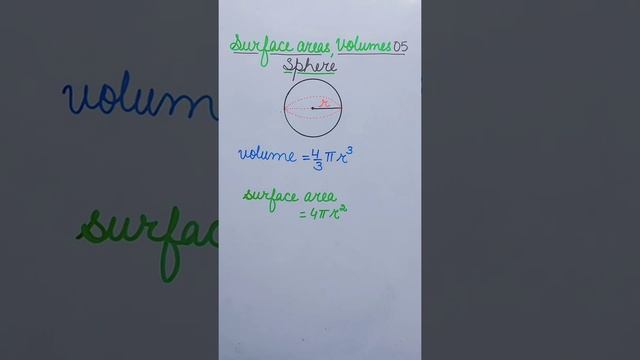 Surface areas, Volumes 05
Sphere
r
volume = 4/3 πr³
surface area
= 4πr²
volum
surfac